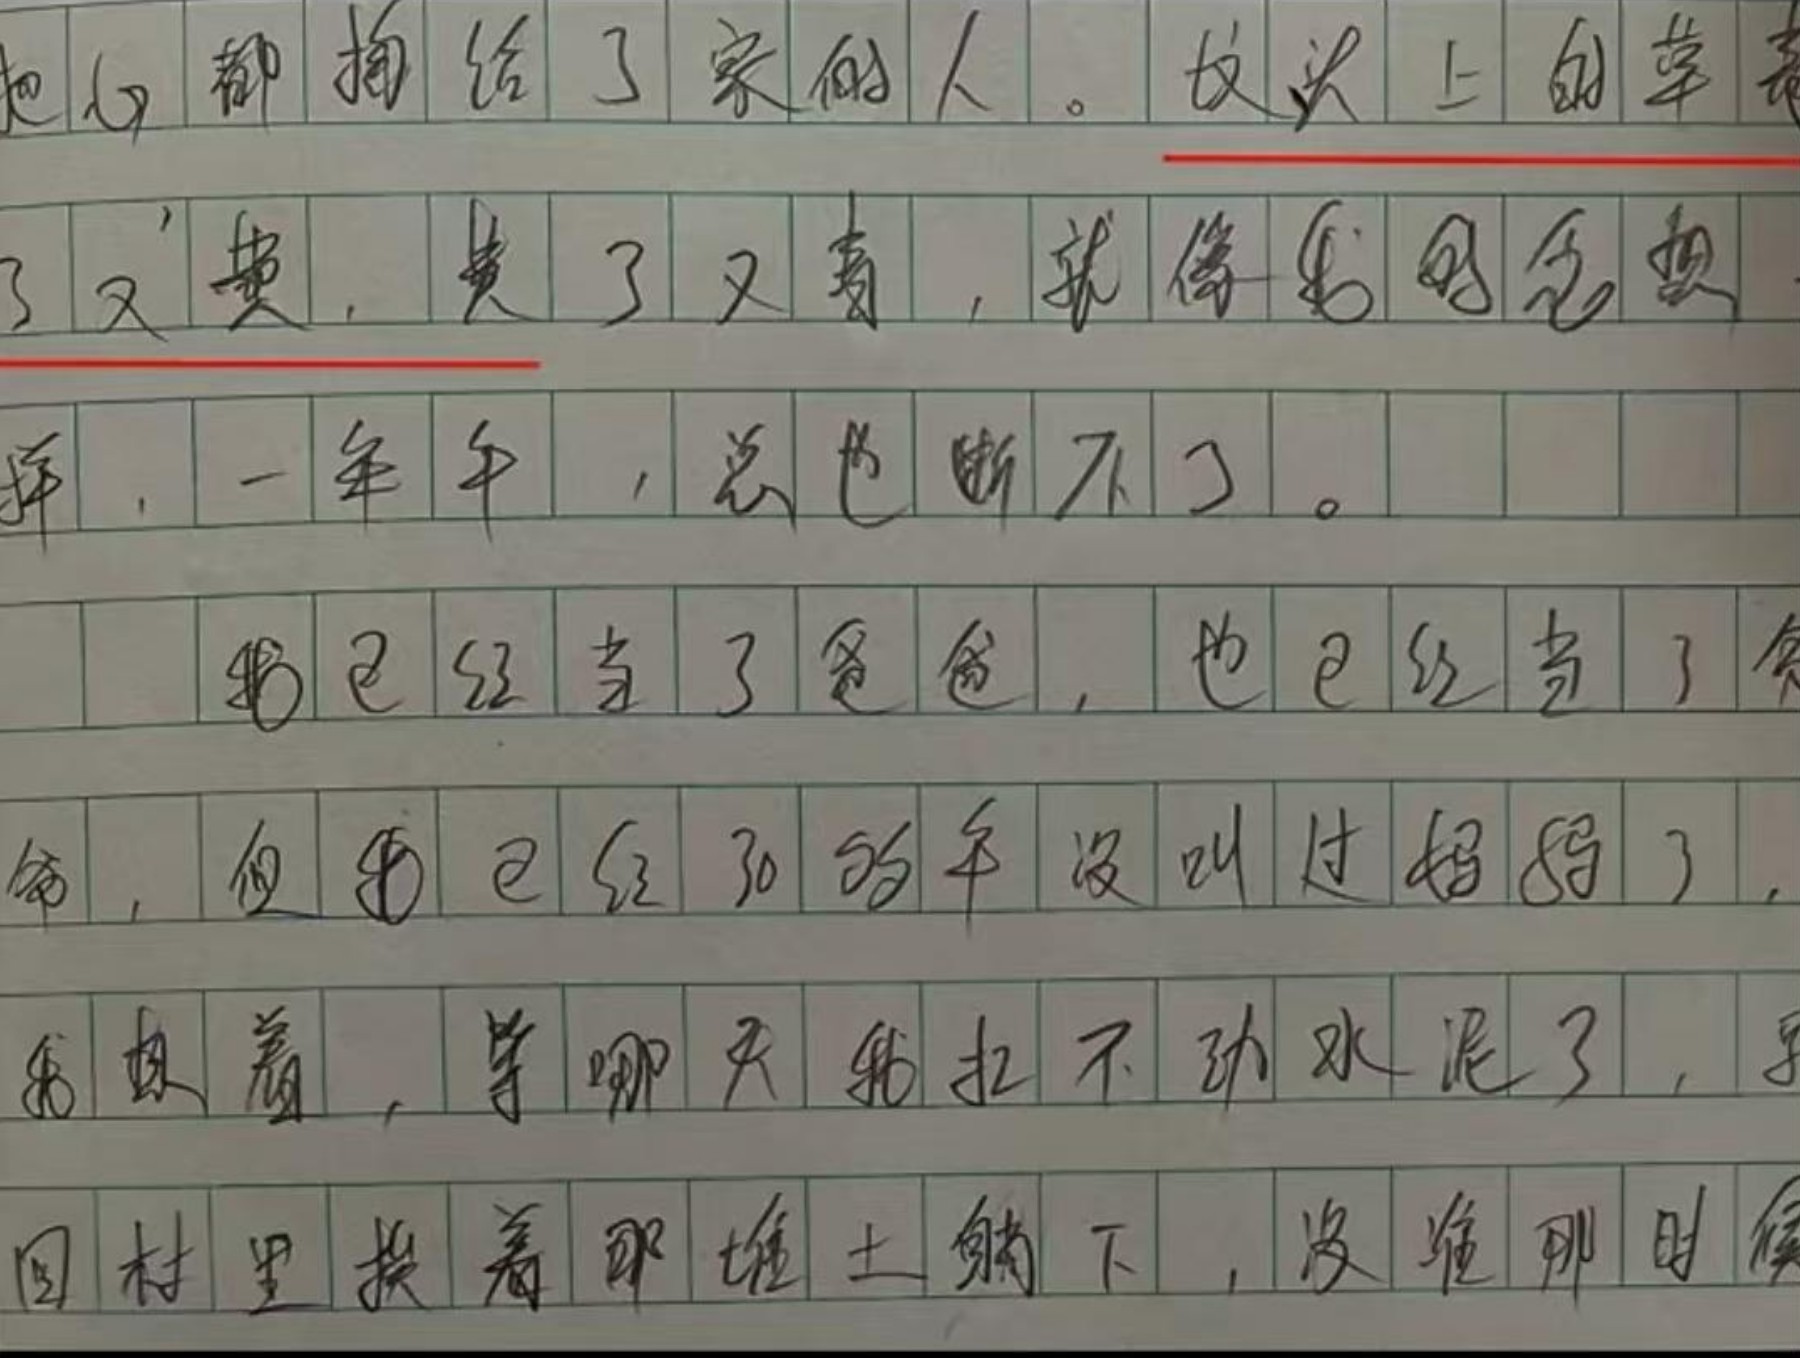 把心都掏给了家的人。坟头上的草青
了又黄，黄了又青，就像我的念想一
样，一年年，总也断不了。
我已经当了爸爸，也已经当了爷
爷，但我已经30多年没叫过妈妈了，
我想着，等哪天我扛不动水泥了，
回村里挨着那堆土躺下，没准那时候